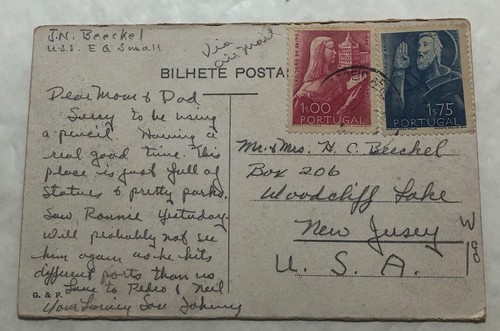 J.N. Beeckel
U.S.S. E G Small
Via
air mail
BILHETE POSTA
1$00
PORTUGAL
1$75
PORTUGAL
Dear Mom & Dad
Sorry to be using
a pencil. Having a
real good time. This
place is just full of
Statues & pretty parks.
Saw Ronnie Yesterday.
will probably not see
him again as he hits
different ports than us
Love to Pedro & Neil
Your Loving Son Johnny
G. & F.
Mr. & Mrs. H. C. Beeckel
Box 206
Woodcliff Lake
New Jersey
U. S. A.